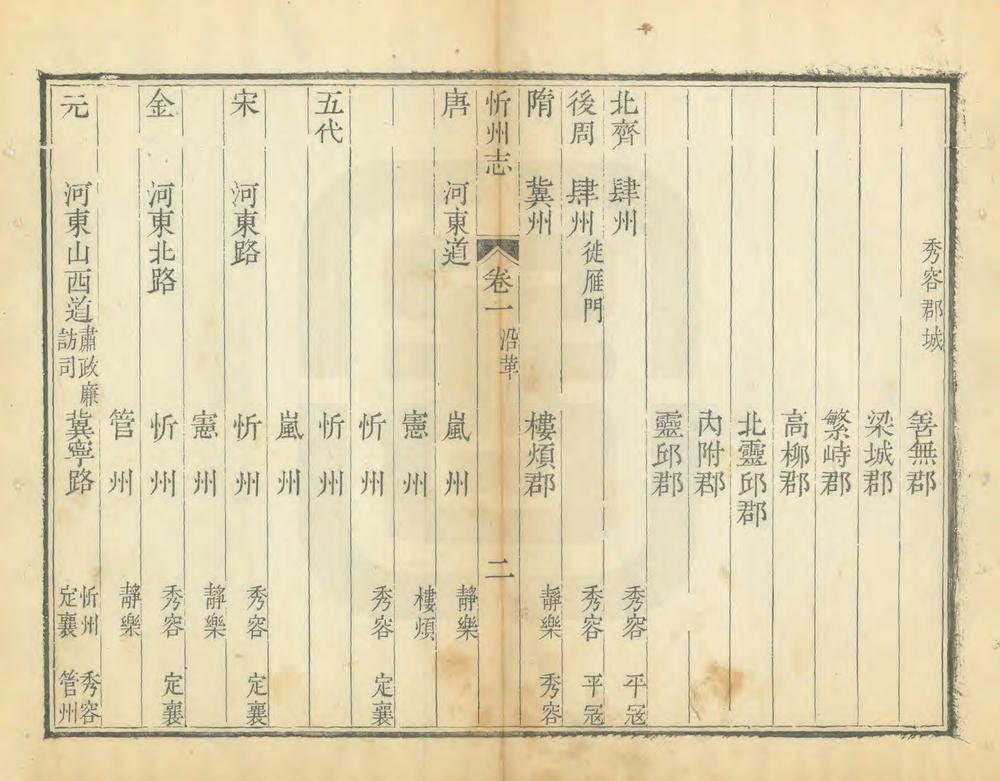 秀容郡城 善無郡
梁城郡
繁峙郡
高柳郡
北靈邱郡
內附郡
靈邱郡
北齊 肆州 秀容 平寇
後周 肆州 徙雁門 秀容 平寇
隋 冀州 樓煩郡 靜樂 秀容
忻州志 卷一 沿革 二
唐 河東道 嵐州 靜樂
憲州 樓煩
忻州 秀容 定襄
五代 忻州
嵐州
宋 河東路 忻州 秀容 定襄
憲州 靜樂
金 河東北路 忻州 秀容 定襄
管州 靜樂
元 河東山西道肅政廉訪司 冀寧路 忻州 秀容 定襄 管州